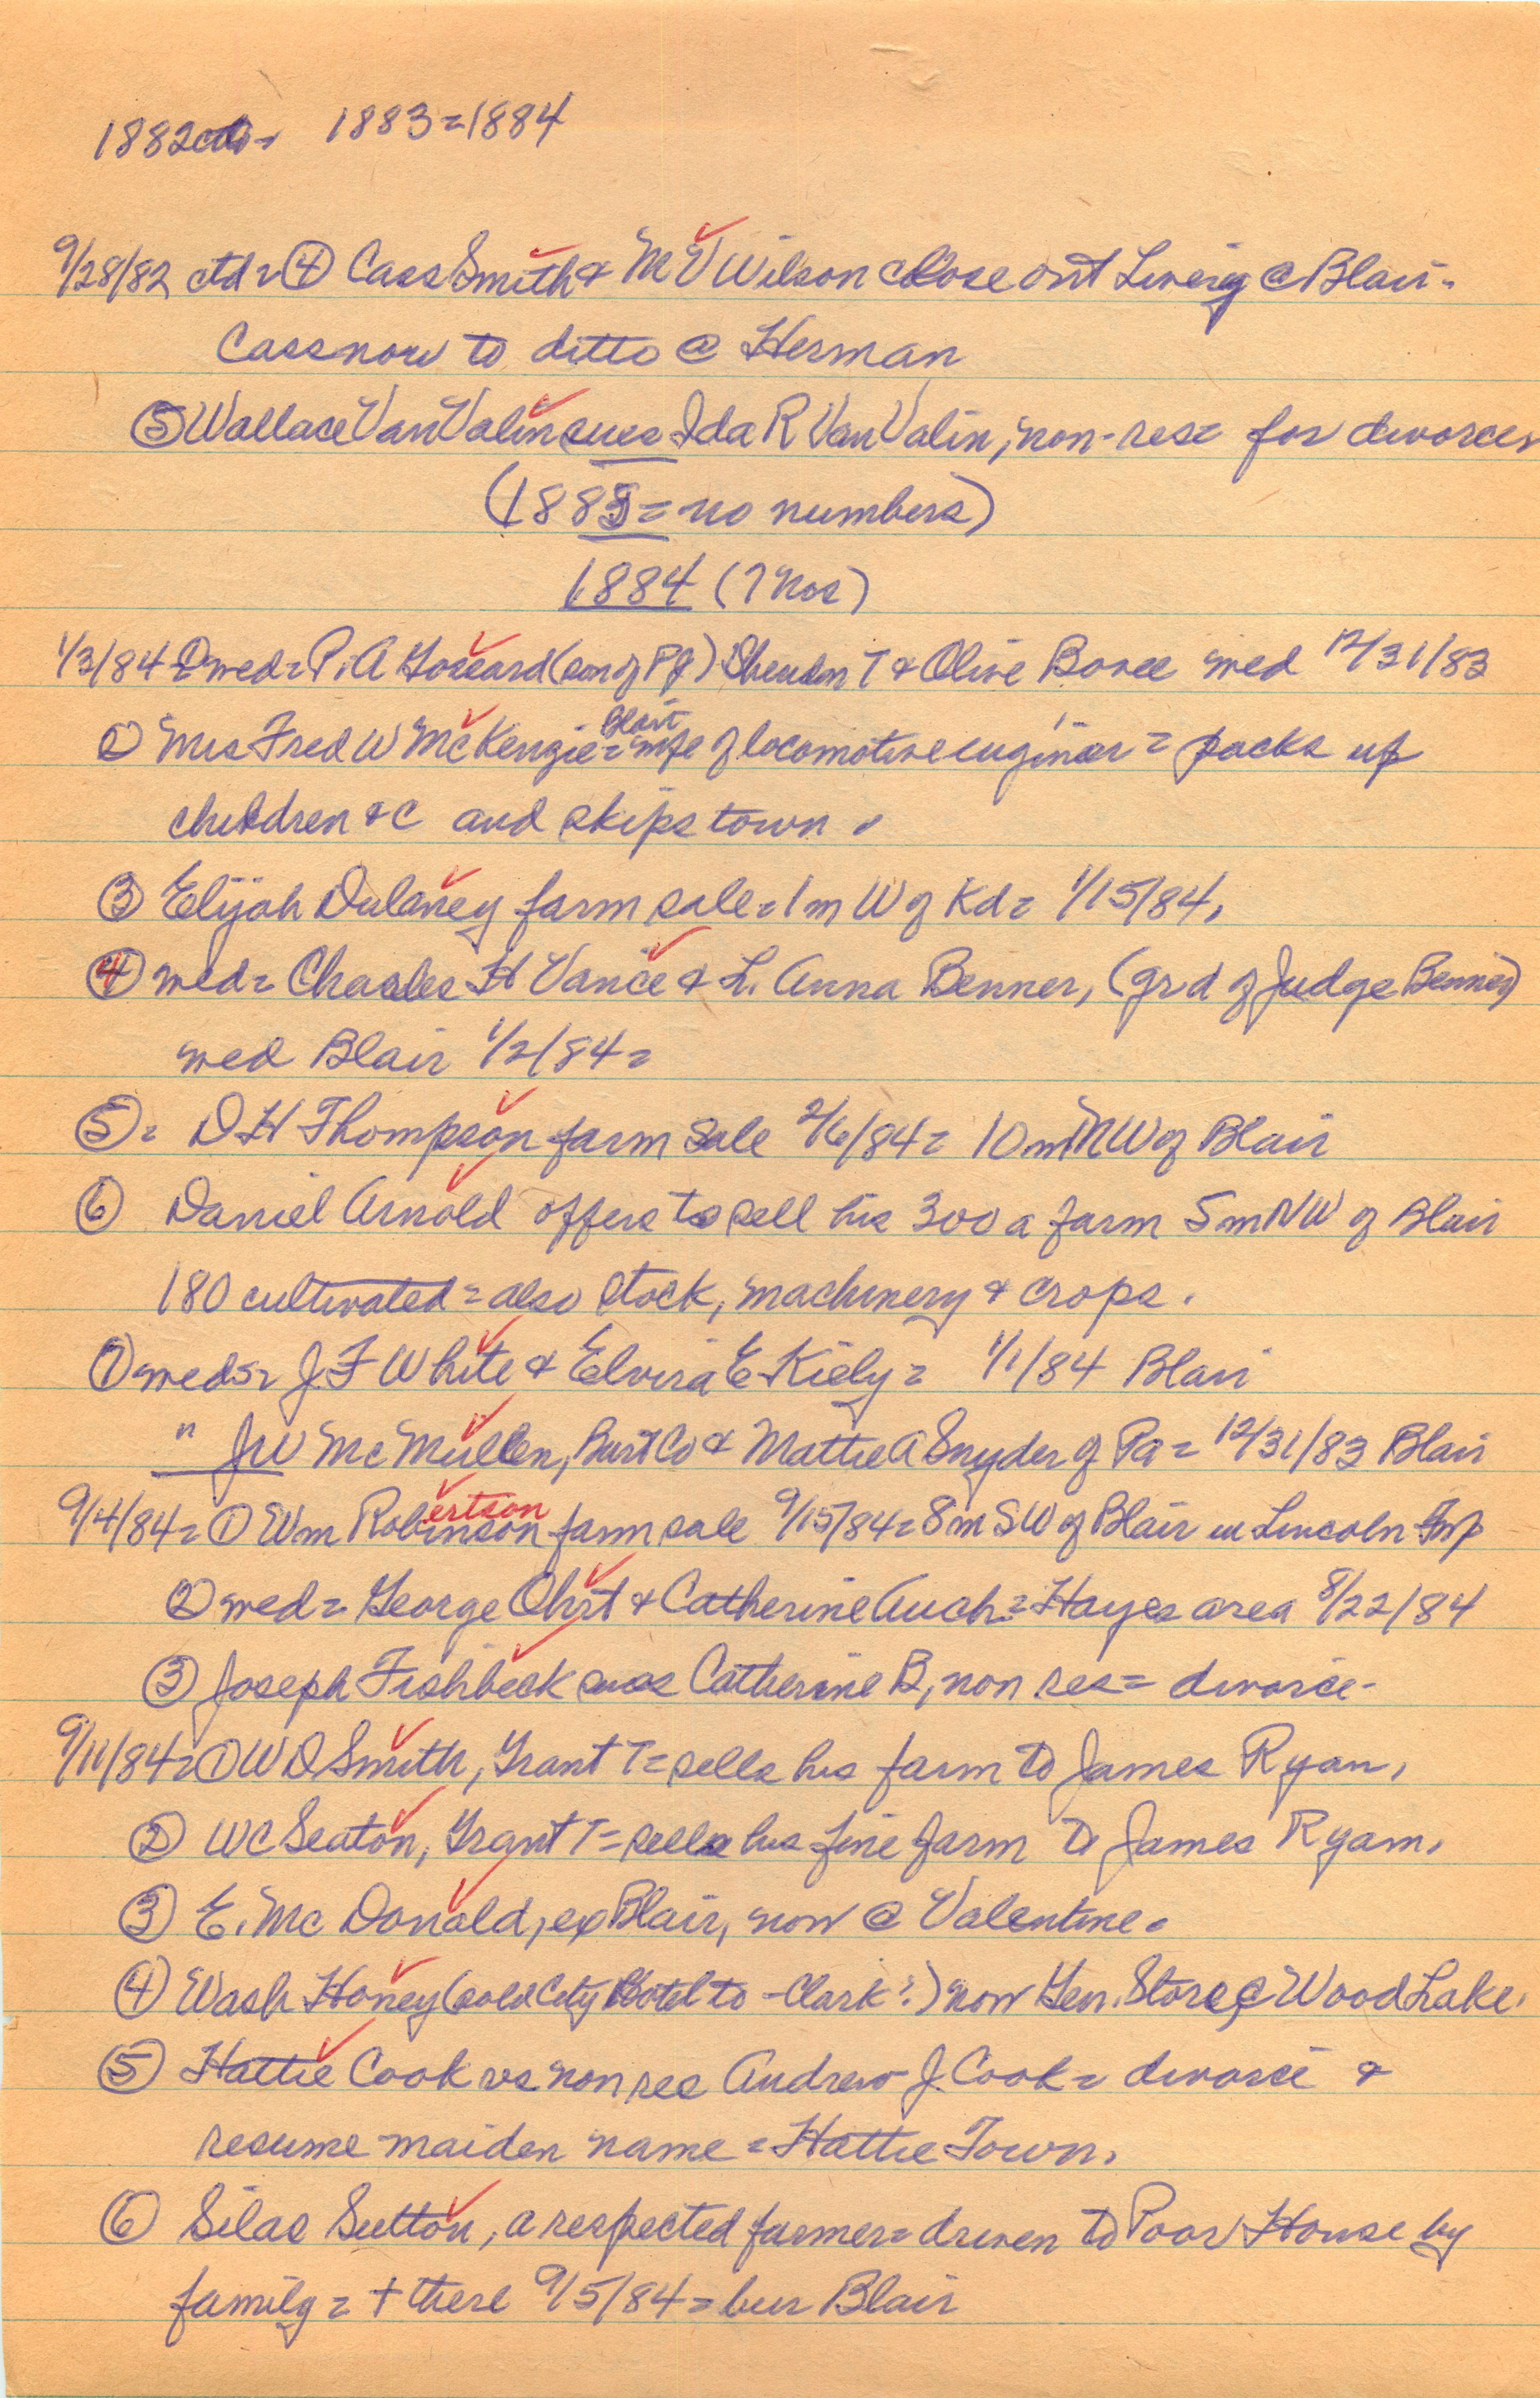 1882ctd= 1883=1884
9/28/82 ctd= ④ Cass Smith & M V Wilson close out Livery @ Blair.
Cass now to ditto @ Herman
⑤ Wallace VanValin sues Ida R VanValin, non-res= for divorce
(1883= no numbers)
1884 (? Nos)
1/3/84 ① wed= P.A Gossard (son of PJ) Sheridan T & Olive Bovee wed 12/31/83
② Mrs Fred W McKenzie= Blair wife of locomotive enginer = packs up
children &c and skips town.
③ Elijah Dulaney farm sale= 1 m W of Kd= 1/15/84,
④ wed= Charles H Vance & L. Anna Benner, (grd of Judge Benner)
wed Blair 1/2/84=
⑤= D H Thompson farm Sale 2/6/84= 10 m NW of Blair
⑥ Daniel Arnold offers to sell his 300 a farm 5 m NW of Blair
180 cultivated = also stock, machinery & crops.
⑦ weds= J. F White & Elvira E Kiely= 1/1/84 Blair
" JW McMullen, Burt Co & Mattie A Snyder of Pa = 12/31/83 Blair
9/4/84= ① Wm Robinson ertson farm sale 9/15/84= 8 m SW of Blair in Lincoln Twp
② wed= George Ohrt & Catherine Auch= Hayes area 8/22/84
③ Joseph Fishbeck sues Catherine B, non res= divorce-
9/11/84= ① W D Smith, Grant T= sells his farm to James Ryan,
② WC Seaton, Grant T= sells his fine farm to James Ryam.
③ E. McDonald, ex Blair, now @ Valentine.
④ Wash Honey (sold City Hotel to -Clark?) now Gen. Store @ Wood Lake.
⑤ Hattie Cook vs non res Andrew J. Cook= divorce &
resume maiden name = Hattie Town.
⑥ Silas Sutton, a respected farmer= driven to Poor House by
family = + there 9/5/84= bur Blair